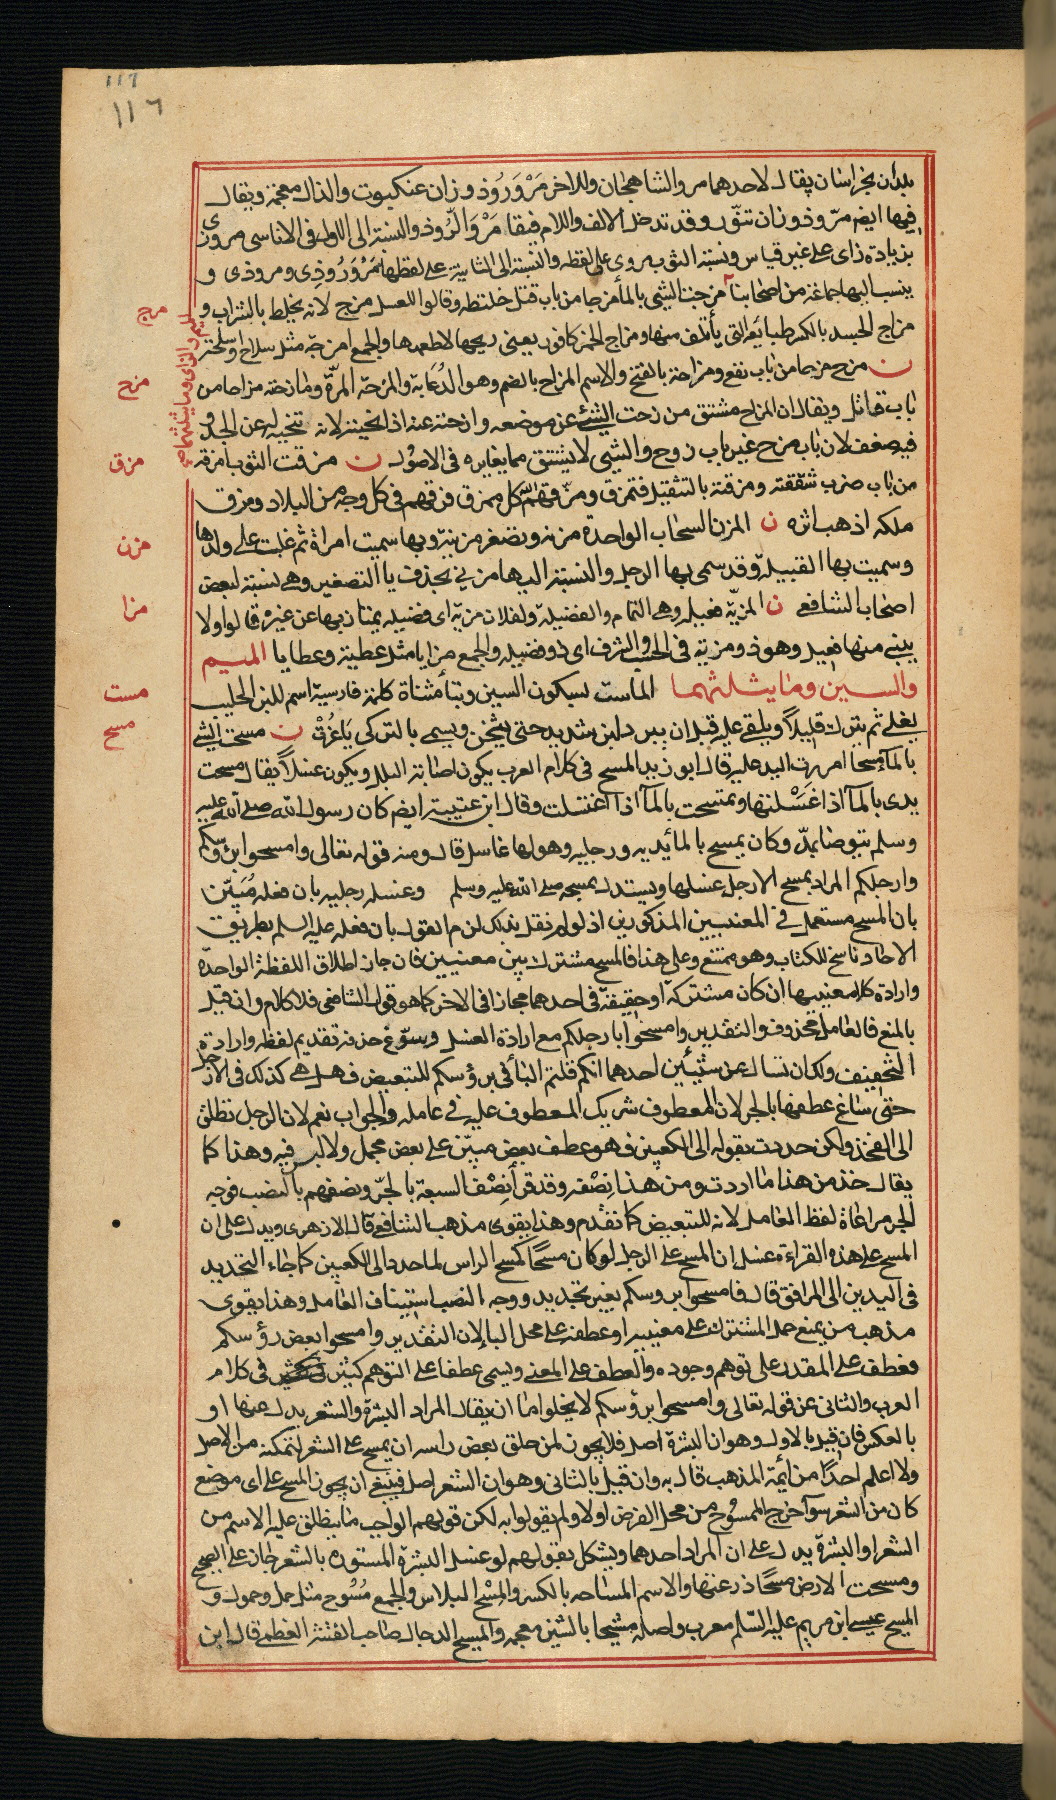 ١١٦
١١٦
بلدان بخراسان يقال لاحدهما مرو الشاهجان وللاخر مَرْوَرُوذ وزان عنكبوت والذال معجمة ويقال
فيها ايضا مرّوذ وزان تنّور وقد تدخل الالف واللام فيقال مَرْوَ الرُّوذ والنسبة الى الاولى فى الاناسى مروزى
بزيادة زاى على غير قياس ونسبة الثوب مروى على لفظه والنسبة الى الثانية على لفظها مَرْوَرُوذِى ومروذى و
ينسب اليها جماعة من اصحابنا مزجت الشئ بالماء مزجا من باب قتل خلطته وقالوا للعسل مزج لانه يخلط بالشراب و
مزاج الجسد بالكسر طبائعه التى يأتلف منها ومزاج الخمر كافور يعنى ريحها لا طعمها والجمع امزجة مثل سلاح واسلحة
ن مزح مزحا من باب نفع ومزاحة بالفتح والاسم المزاح بالضم وهو الدُعابة والمزحة المرّة ومازحته مزاحا من
باب قاتل ويقال ان المزاح مشتق من زحت الشئ عن موضعه وازحته عنه اذا نحيته لانه تنحية له عن الجد و
فيه ضعف لان باب مزح غير باب زوح والشئ لا يشتق مما يغايره فى الاصول ن مزقت الثوب مزقا
من باب ضرب شققته ومزقته بالتثقيل فتمزق ومزّقهم الله كل ممزق فرقهم فى كل وجه من البلاد ومزق
ملكه اذهب اثره ن المزن السحاب الواحدة مزنة وتصغر مزينة وبها سميت امراة ثم غلبت على ولدها
وسميت بها القبيلة وقد سمى بها الرجل والنسبة اليها مزنى بحذف يا التصغير وهى نسبة لبعض
اصحاب الشافعى ن المزيّة فعيلة وهى التمام والفضيلة ولفلان مزيّة اى فضيلة يمتاز بها عن غيره قالوا ولا
يبنى منها فعيل وهو ذو مزية فى الحسب والشرف اى ذو فضيلة والجمع مزايا مثل عطية وعطايا الميم
والسين وما يثلثهما الماست بسكون السين وبتاء مثناة كلمة فارسية اسم للبن الحليب
يغلى ثم يترك قليلاً ويلقى عليه قبل ان يبرد لبن شديد حتى يثخن ويسمى بالتركى يَاغُرْت ن مسحت الشئ
بالماء مسحا امررت اليد عليه قال ابو زيد المسح فى كلام العرب يكون اصابة البلل ويكون غسلا يقال مسحت
يدى بالماء اذا غَسَلتها وتمسحت بالماء اذا اغتسلت وقال ابن قتيبة ايضا كان رسول الله صلى الله عليه
وسلم يتوضا بمدّ وكان يمسح بالماء يديه ورجليه وهو لها غاسل قال ومنه قوله تعالى وامسحوا برؤسكم
وارجلكم المراد بمسح الارجل غسلها ويستدل بمسحه صلى الله عليه وسلم وغسله رجليه بان فعله مُبَيّن
بان المسح مستعمل فى المعنيين المذكورين اذ لو لم نقل بذلك لزم القول بان فعله عليه السلم بطريق
الاحاد ناسخ للكتاب وهو ممتنع وعلى هذا فالمسح مشترك بين معنيين فان جاز اطلاق اللفظة الواحدة
وارادة كلا معنييها ان كان مشتركة او حقيقة فى احدهما مجازا فى الاخر كما هو قول الشافعى فلا كلام وان قيل
بالمنع فالعامل محذوف والتقدير وامسحوا بارجلكم مع ارادة الغسل ويسوّغ حذفه تقديم لفظه وارادة
التخفيف ولك ان تسال عن شيئين احدهما انكم قلتم الباء فى برؤسكم للتبعيض فهل هى كذلك فى الارجل
حتى ساغ عطفها بالجر لان المعطوف شريك المعطوف عليه فى عامله والجواب نعم لان الرجل تطلق
الى الفخذ ولكن حددت بقوله الى الكعبين فهو عطف بعض مبيّن على بعض مجمل ولا لبس فيه وهذا كما
يقال خذ من هذا ما اردت ومن هذا نِصْفه وقد قرأ نِصْفَ السبعة بالجرّ ونصفهم بالنصب فوجه
الجر مراعاة لفظ العامل لانه للتبعيض كما تقدم وهذا يقوى مذهب الشافعى قال الازهرى ويدل على ان
المسح على هذه القراءة غسل ان المسح على الرجل لو كان مسحًا كمسح الراس لما حدد الى الكعبين كما جاء التحديد
فى اليدين الى المرافق قال فامسحوا برؤسكم بغير تحديد ووجه النصب استيناف العامل وهذا يقوى
مذهب من يمنع حمل المشترك على معنييه او عطفه على محل الباء لان التقدير وامسحوا بعض رؤسكم
فعطف على المقدر على توهم وجوده والعطف على المعنى ويسمى عطفا على التوهم كثير فى كلام
العرب والثانى عن قوله تعالى وامسحوا برؤسكم لا يخلو اما ان يقال المراد البشرة والشعر بدل عنها او
بالعكس فان قيل بالاول وهو ان البشرة اصل فلا يجوز لمن حلق بعض راسه ان يمسح على الشعر لتمكنه من الاصل
ولا اعلم احدًا من ائمة المذهب قال به وان قيل بالثانى وهو ان الشعر اصل فينبغى ان يجوز المسح على اى موضع
كان من الشعر سوآ خرج الممسوح من محل الفرض اولا ولم يقولوا به لكن قولهم الواجب ما ينطلق عليه الاسم من
الشعر او البشرة يدل على ان المراد احدهما ويشكل بقولهم لو غسل البشرة المستورة بالشعر جاز على الصحيح
ومسحت الارض مسحًا ذرعتها والاسم المساحة بالكسر والمِسْح البلاس والجمع مُسُوح مثل حمل وحمول و
المسيح عيسى ابن مريم عليه السّلم معرب واصله مشيحا بالشين معجمة والمسيح الدجال صاحب الفتنة العظمى قال ابن
مزج
الميم والزاى وما يثلثهما
مزح
مزق
مزن
مزا
مست
مسح